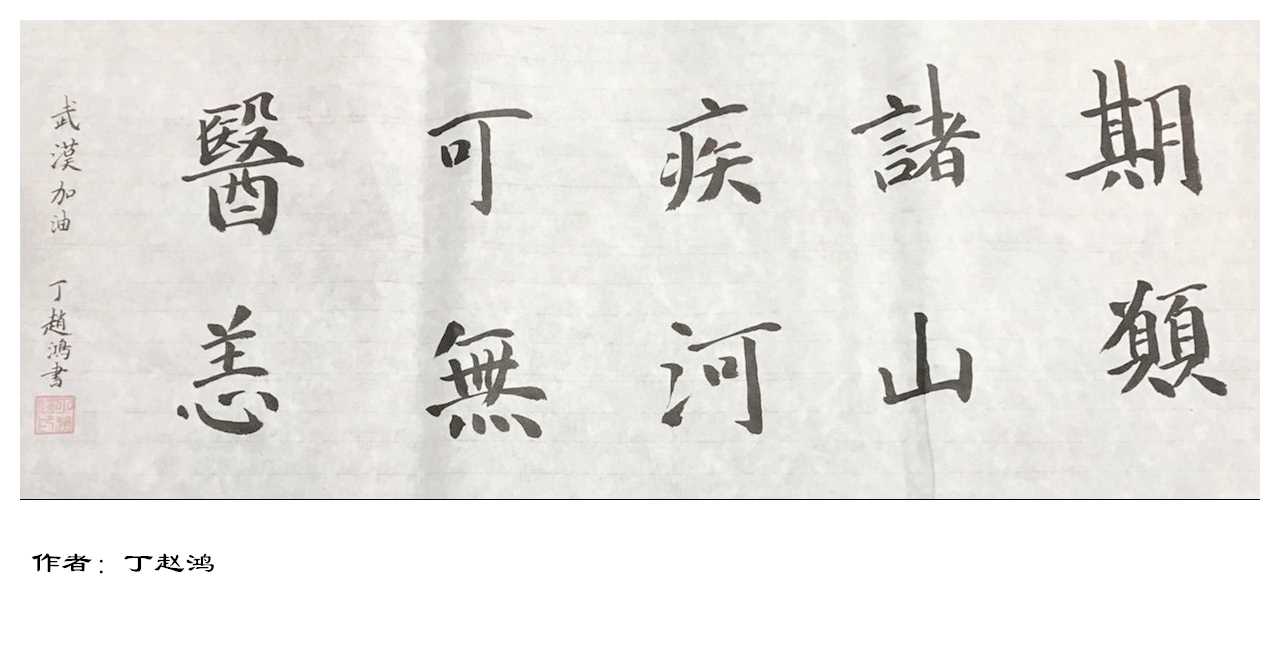 期諸疾可醫
願山河無恙
武漢加油 丁趙鴻書
作者：丁赵鸿